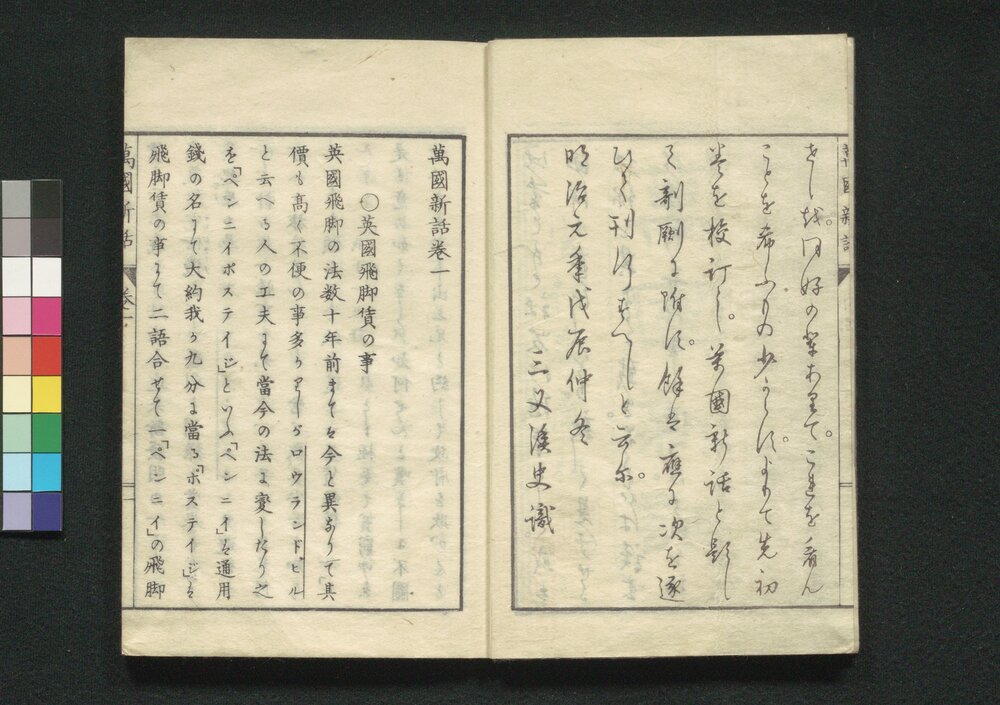 ことを希ふもの少からす。よりて先初
巻を校訂し。萬國新話と題し
て剞劂に附す。餘は應に次を逐
ひて刊行すへしと云尓。
明治元年戊辰仲冬
三叉溪史識
萬國新話
萬國新話巻一
○英國飛脚賃の事
英國飛脚の法数十年前まては今と異なりて其
價も高く不便の事多かりしがロウランドヒル
と云へる人の工夫にて當今の法に変したり之
を「ペンニイポステイジ」といふ「ペンニイ」は通用
錢の名にて大約我か九分に當る「ポステイジ」は
飛脚賃の事にて二語合せて一「ペンニイ」の飛脚
萬國新話
巻一